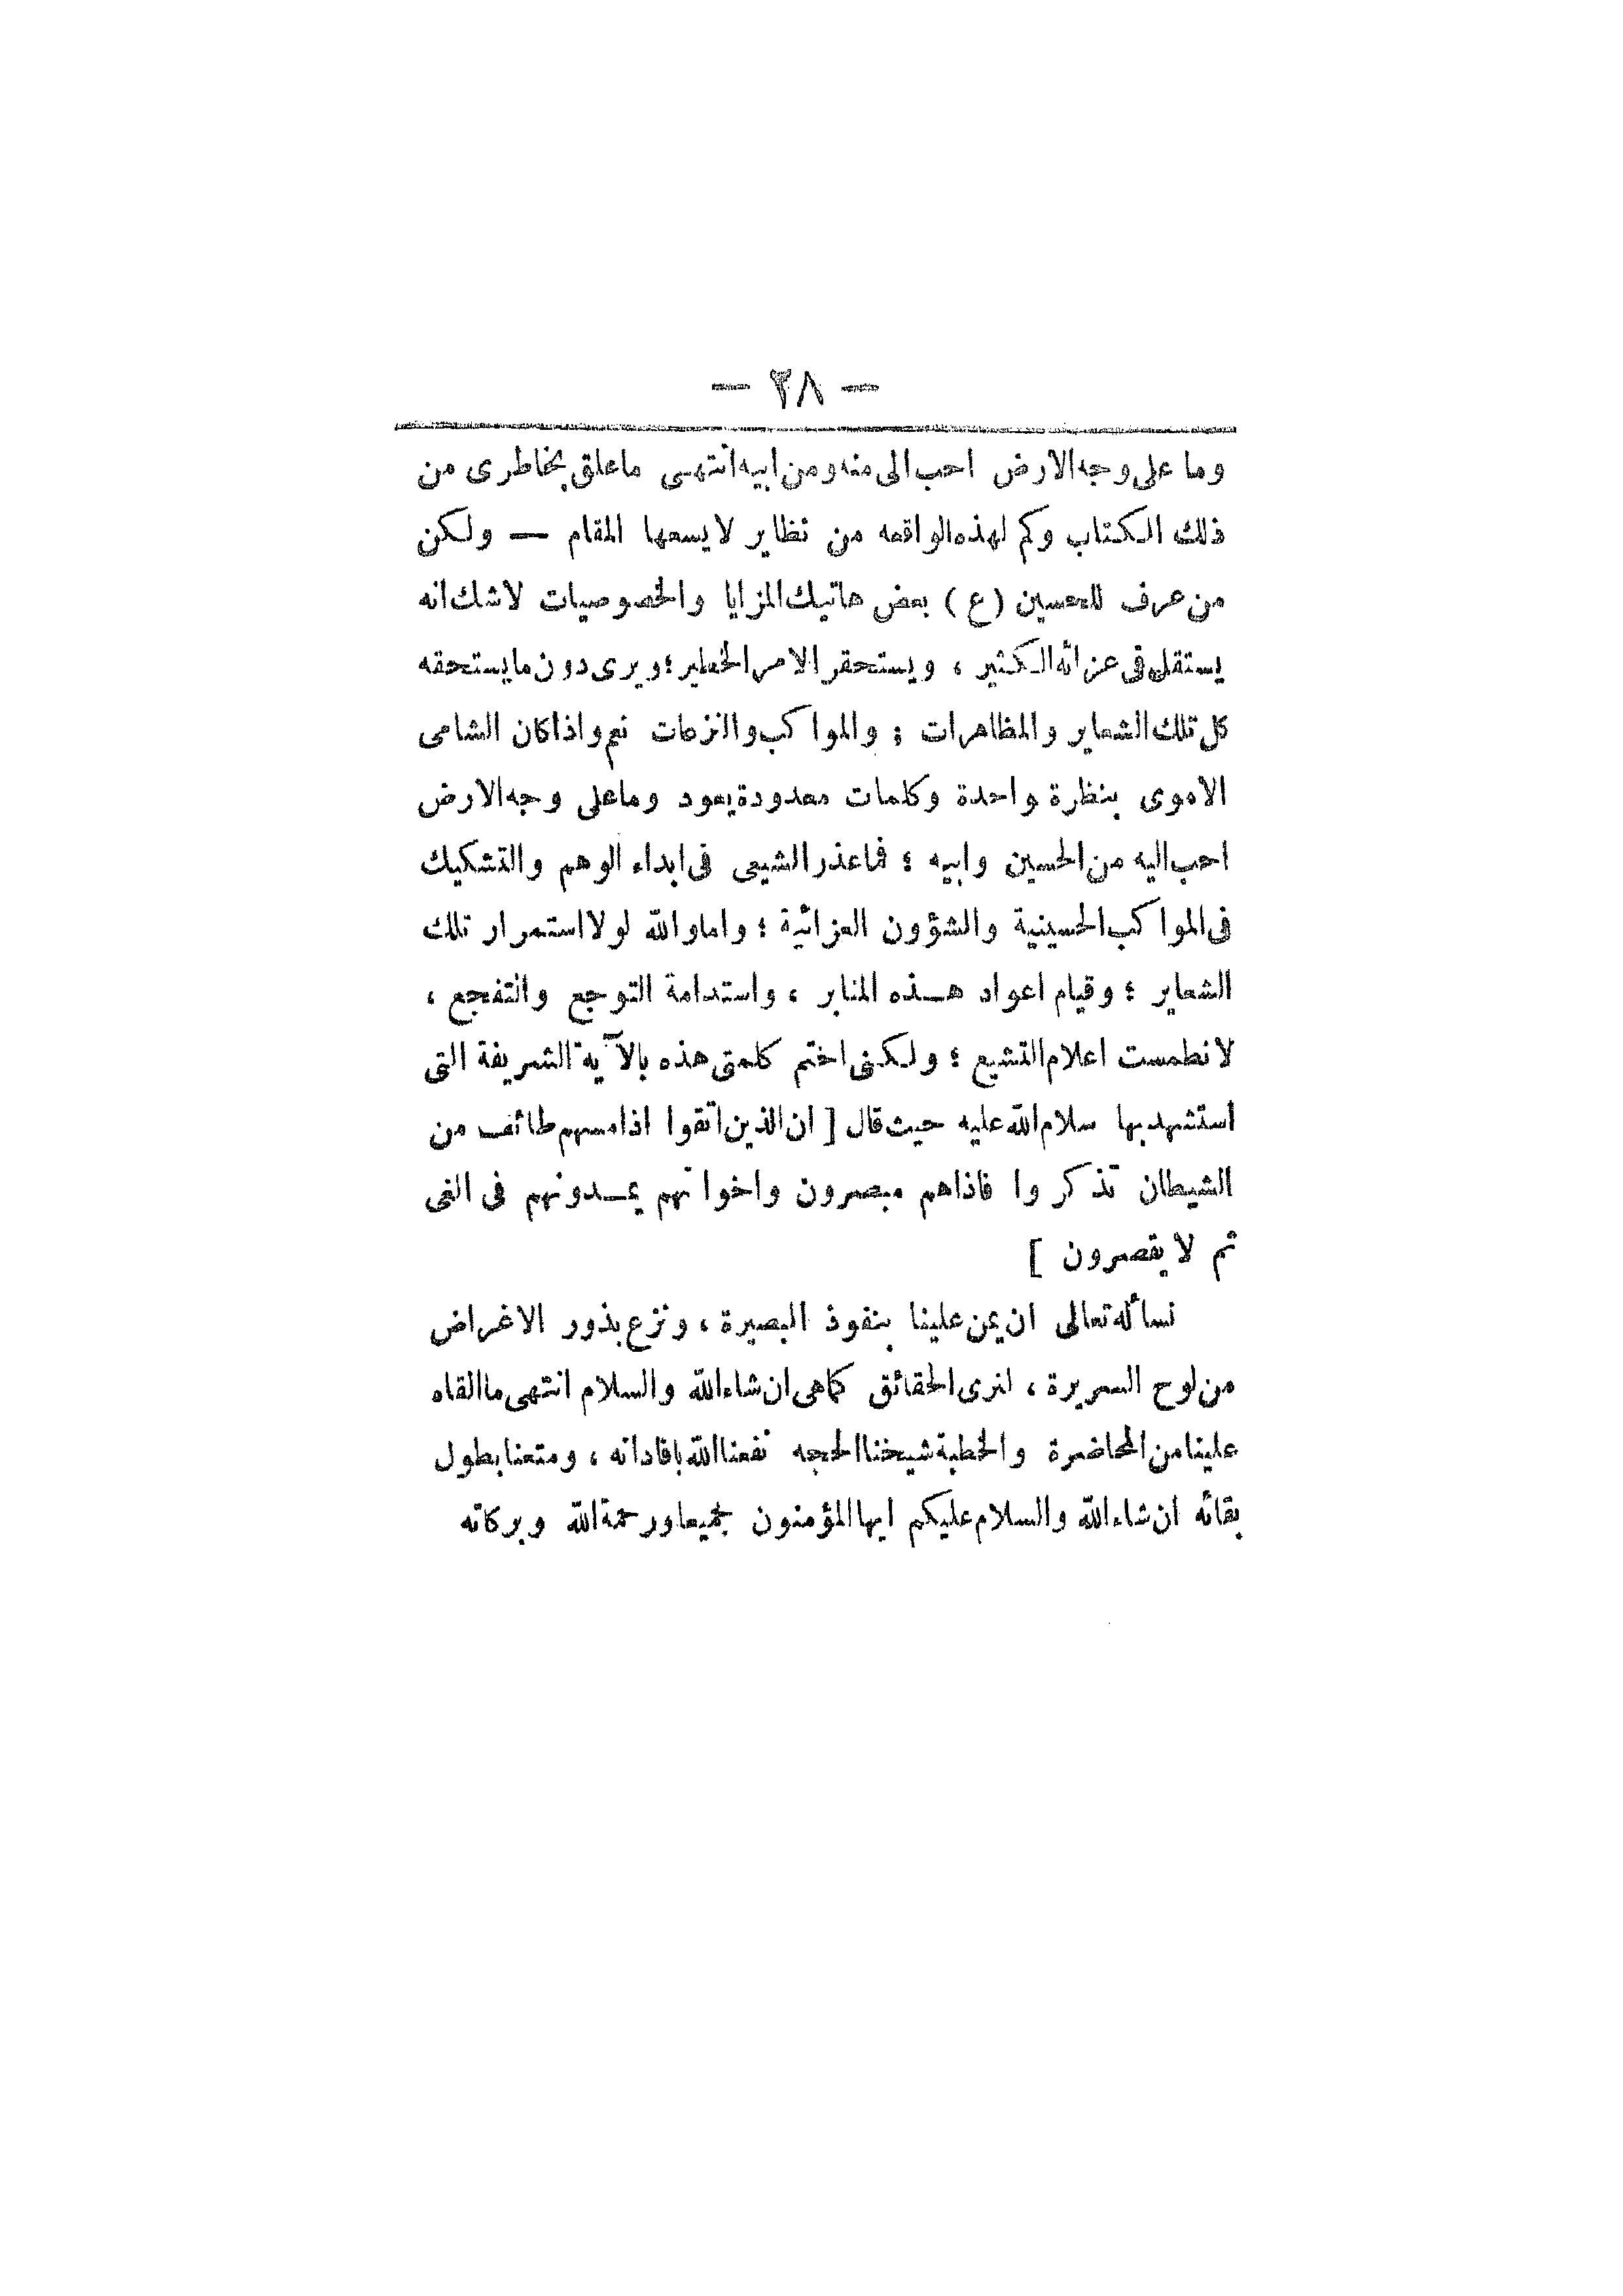 — ٣٨ —
وما على وجه الارض احب الى منه ومن ابيه انتهى ما علق بخاطرى من
ذلك الكتاب وكم لهذه الواقعه من نظاير لا يسعها المقام — ولكن
من عرف للحسين (ع) بعض هاتيك المزايا والخصوصيات لا شك انه
يستقل فى عزائه الكثير ، ويستحقر الامر الخطير ؛ ويرى دون ما يستحقه
كل تلك الشعاير والمظاهرات ؛ والمواكب والنزعات نعم واذا كان الشامى
الاموى بنظرة واحدة وكلمات معدودة يعود وما على وجه الارض
احب اليه من الحسين وابيه ؛ فما عذر الشيعى فى ابداء الوهم والتشكيك
فى المواكب الحسينية والشؤون العزائية ؛ واما والله لولا استمرار تلك
الشعاير ؛ وقيام اعواد هـذه المنابر ، واستدامة التوجع والتفجع ،
لانطمست اعلام التشيع ؛ ولكنى اختم كلمتى هذه بالآية الشريفة التى
استشهد بها سلام الله عليه حيث قال [ ان الذين اتقوا اذا مسهم طائف من
الشيطان تذكروا فاذاهم مبصرون واخوانهم يمـدونهم فى الغى
ثم لا يقصرون ]
نسأله تعالى ان يمن علينا بنفوذ البصيرة ، ونزع بذور الاغراض
من لوح السريرة ، لنرى الحقائق كما هى ان شاء الله والسلام انتهى ما القاه
علينا من المحاضرة والخطبة شيخنا الحجه نفعنا الله بافاداته ، ومتعنا بطول
بقائه ان شاء الله والسلام عليكم ايها المؤمنون جميعا ورحمة الله وبركاته